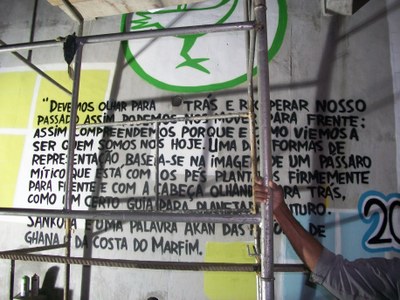 "DEVEMOS OLHAR PARA TRÁS E RECUPERAR NOSSO
PASSADO ASSIM PODEMOS NOS MOVER PARA FRENTE;
ASSIM COMPREENDEMOS PORQUE E COMO VIEMOS A
SER QUEM SOMOS NÓS HOJE. UMA DAS FORMAS DE
REPRESENTAÇÃO BASEIA-SE NA IMAGEM DE UM PASSARO
MÍTICO QUE ESTÁ COM OS PÉS PLANTADOS FIRMEMENTE
PARA FRENTE E COM A CABEÇA OLHANDO PARA TRÁS,
COMO UM CERTO GUIA PARA PLANETAR FUTURO.
SANKOFA É UMA PALAVRA AKAN DAS DE
GHANA E DA COSTA DO MARFIM.
20